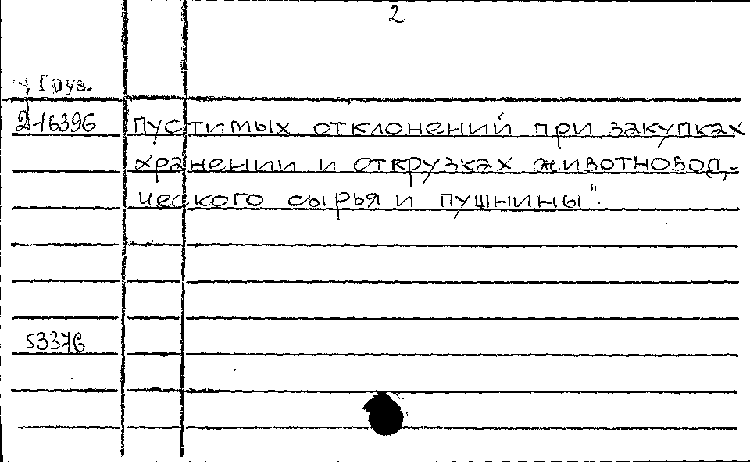 2
Груз.
2-16396 пустимых отклонений при закупках
хранении и откружках животновод-
ческого сырья и пушнины".
53376